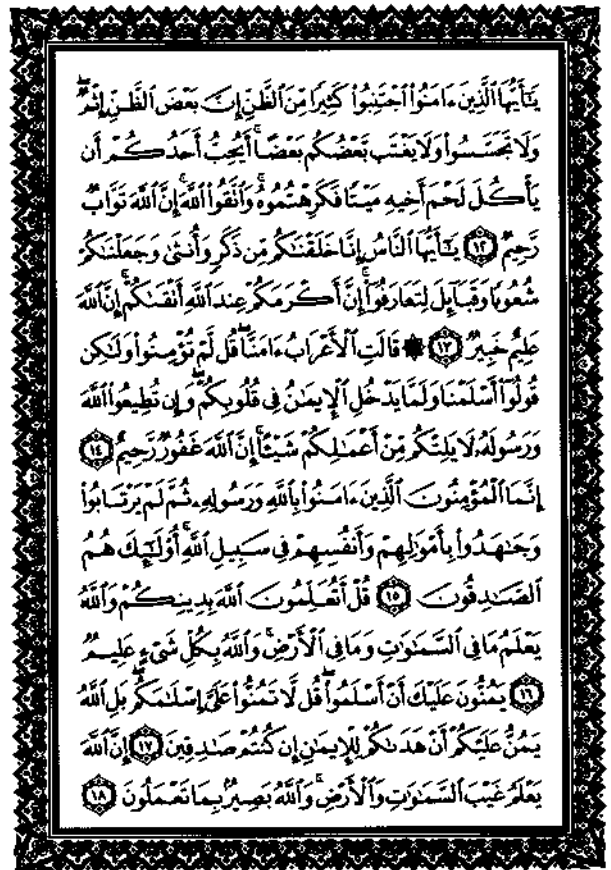 يَٰٓأَيُّهَا ٱلَّذِينَ ءَامَنُوا۟ ٱجْتَنِبُوا۟ كَثِيرًا مِّنَ ٱلظَّنِّ إِنَّ بَعْضَ ٱلظَّنِّ إِثْمٌ ۖ
وَلَا تَجَسَّسُوا۟ وَلَا يَغْتَب بَّعْضُكُم بَعْضًا ۚ أَيُحِبُّ أَحَدُكُمْ أَن
يَأْكُلَ لَحْمَ أَخِيهِ مَيْتًا فَكَرِهْتُمُوهُ ۚ وَٱتَّقُوا۟ ٱللَّهَ ۚ إِنَّ ٱللَّهَ تَوَّابٌ
رَّحِيمٌ ١٢ يَٰٓأَيُّهَا ٱلنَّاسُ إِنَّا خَلَقْنَٰكُم مِّن ذَكَرٍ وَأُنثَىٰ وَجَعَلْنَٰكُمْ
شُعُوبًا وَقَبَآئِلَ لِتَعَارَفُوٓا۟ ۚ إِنَّ أَكْرَمَكُمْ عِندَ ٱللَّهِ أَتْقَىٰكُمْ ۚ إِنَّ ٱللَّهَ
عَلِيمٌ خَبِيرٌ ١٣ ۞ قَالَتِ ٱلْأَعْرَابُ ءَامَنَّا ۖ قُل لَّمْ تُؤْمِنُوا۟ وَلَٰكِن
قُولُوٓا۟ أَسْلَمْنَا وَلَمَّا يَدْخُلِ ٱلْإِيمَٰنُ فِى قُلُوبِكُمْ ۖ وَإِن تُطِيعُوا۟ ٱللَّهَ
وَرَسُولَهُۥ لَا يَلِتْكُم مِّنْ أَعْمَٰلِكُمْ شَيْـًٔا ۚ إِنَّ ٱللَّهَ غَفُورٌ رَّحِيمٌ ١٤
إِنَّمَا ٱلْمُؤْمِنُونَ ٱلَّذِينَ ءَامَنُوا۟ بِٱللَّهِ وَرَسُولِهِۦ ثُمَّ لَمْ يَرْتَابُوا۟
وَجَٰهَدُوا۟ بِأَمْوَٰلِهِمْ وَأَنفُسِهِمْ فِى سَبِيلِ ٱللَّهِ ۚ أُو۟لَٰٓئِكَ هُمُ
ٱلصَّٰدِقُونَ ١٥ قُلْ أَتُعَلِّمُونَ ٱللَّهَ بِدِينِكُمْ وَٱللَّهُ
يَعْلَمُ مَا فِى ٱلسَّمَٰوَٰتِ وَمَا فِى ٱلْأَرْضِ ۚ وَٱللَّهُ بِكُلِّ شَىْءٍ عَلِيمٌ
١٦ يَمُنُّونَ عَلَيْكَ أَنْ أَسْلَمُوا۟ ۖ قُل لَّا تَمُنُّوا۟ عَلَىَّ إِسْلَٰمَكُم ۖ بَلِ ٱللَّهُ
يَمُنُّ عَلَيْكُمْ أَنْ هَدَىٰكُمْ لِلْإِيمَٰنِ إِن كُنتُمْ صَٰدِقِينَ ١٧ إِنَّ ٱللَّهَ
يَعْلَمُ غَيْبَ ٱلسَّمَٰوَٰتِ وَٱلْأَرْضِ ۚ وَٱللَّهُ بَصِيرٌۢ بِمَا تَعْمَلُونَ ١٨